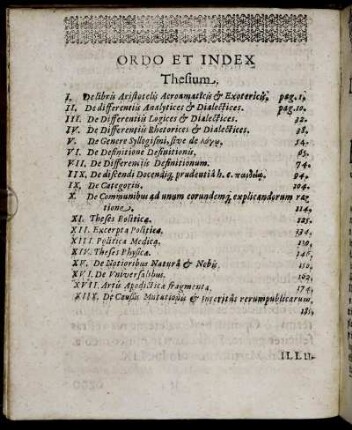 ORDO ET INDEX
Thesium.
I. De libris Aristotelis Acroamaticis & Exotericis, pag. 1.
II. De differentiis Analytices & Dialectices. pag. 10.
III. De Differentiis Logices & Dialectices. 22.
IV. De Differentiis Rhetorices & Dialectices. 38.
V. De Genere Syllogismi, sive de λόγῳ, 54.
VI. De Definitione Definitionis, 65.
VII. De Differentiis Definitionum. 74.
IIX. De discendi Docendiq; prudentia h. e.
IX. De Categoriis. 104.
X. De Communibus ad unum eorundemq; explicandorum ra-
tione. 114.
XI. Theses Politicæ. 125.
XII. Excerpta Politica,
XIII. Politica Medica. 139.
XIV. Theses Physicæ. 146.
XV. De Notioribus Naturâ & Nobis. 150.
XVI. De Vniversalibus. 162.
XVII. Artis Apodicticæ fragmenta. 174.
XIIX. De Causis Mutationis & interitûs rerumpublicarum,
181.
ILLU-